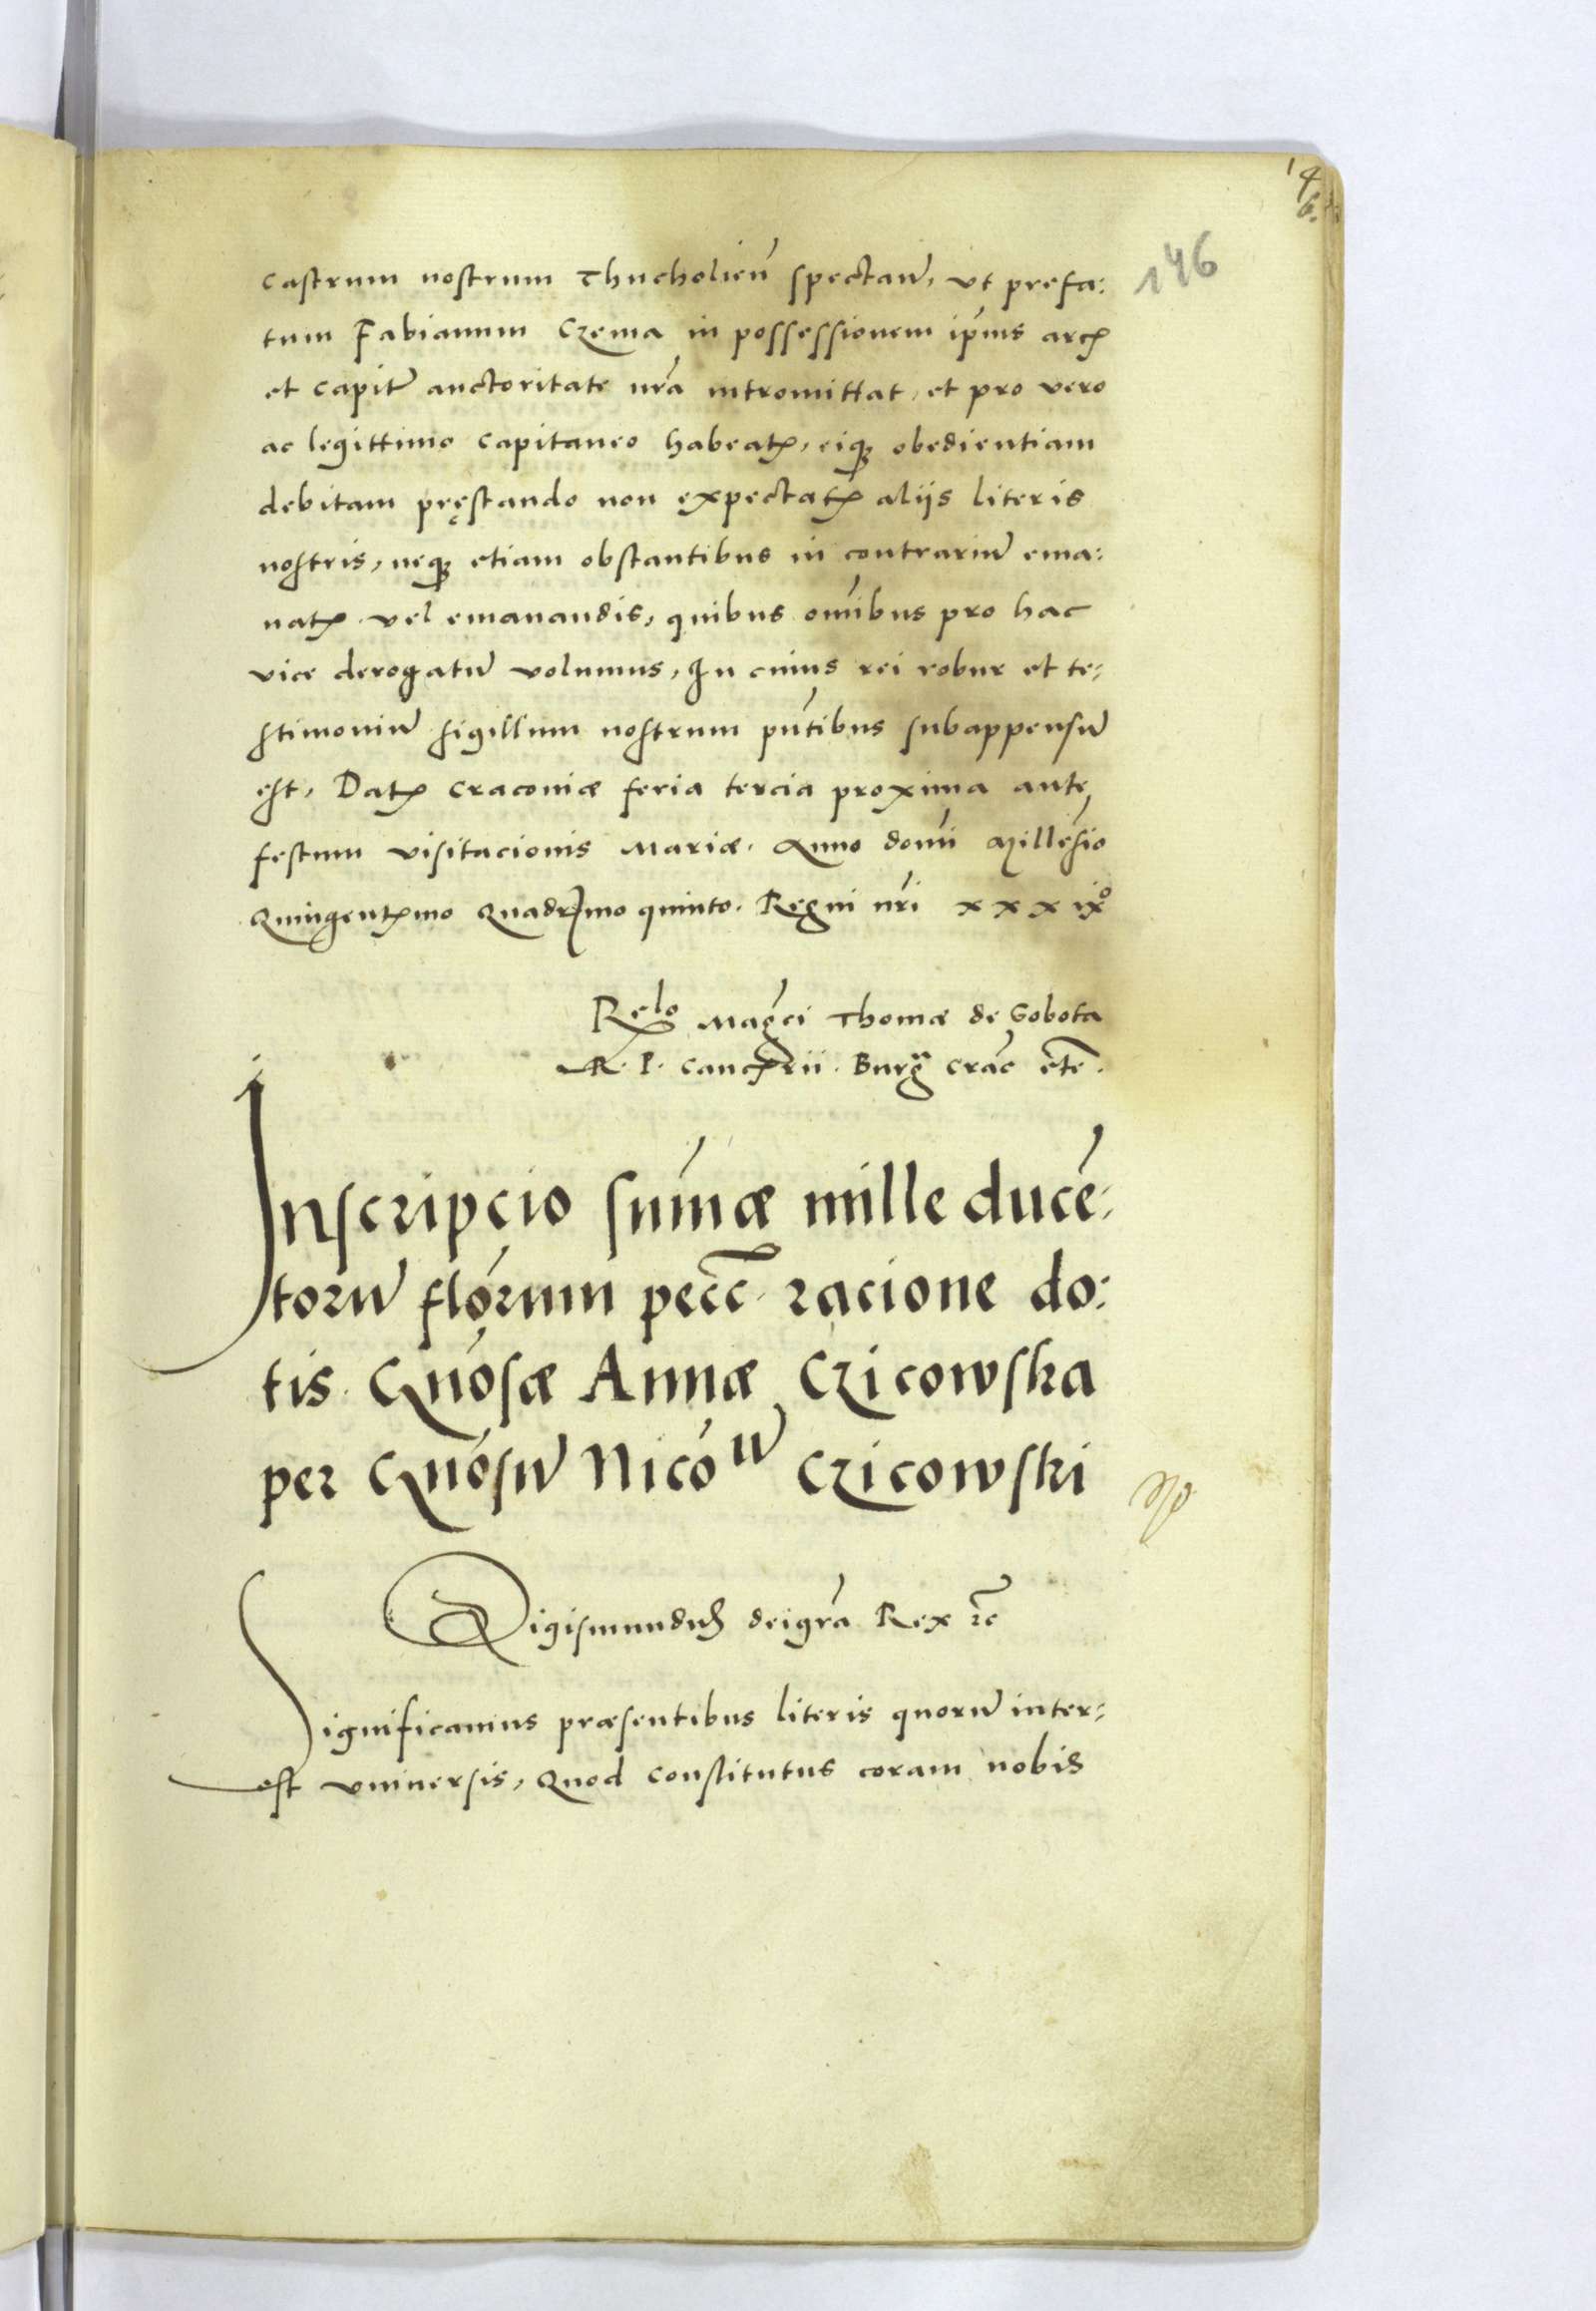 146
castrum nostrum Thucholieñ spectan̄, vt prefa:
tum Fabianum Czema in possessionem ip̄ius arcꝭ
et capit̄ auctoritate nr̄a intromittat, et pro vero
ac legittimo capitaneo habeatꝭ, eiqꝫ obedientiam
debitam pręstando non expectatꝭ alijs literis
nostris, neqꝫ etiam obstantibus in contrariū ema:
natꝭ vel emanandis, quibus om̄ibus pro hac
vice derogatū volumus, In cuius rei robur et te-
stimoniū sigillum nostrum pn̄tibus subappensū
est, Datꝭ Craconiæ feria tercia proxima ante
festum visitacionis Mariæ. Anno domī Millesīo
Quingentꝭmo Quadrꝭmo quinto. Regni nr̄i xxxixº
Relo Maḡci Thomæ de Sobota
R. P. Cancꝭrii. Burg̈ Crac̄ etc̄.
Inscripcio sum̄æ mille ducē-
torū flōrum pecc̄ racione do:
tis Gn̄osæ Annæ Czicowska
per Gn̄osū Nicōū Czicowski
Sigismundus deigr̄a Rex ꝛc̄
Significamus præsentibus literis quorū inter-
est vniuersis, Quod constitutus coram nobis